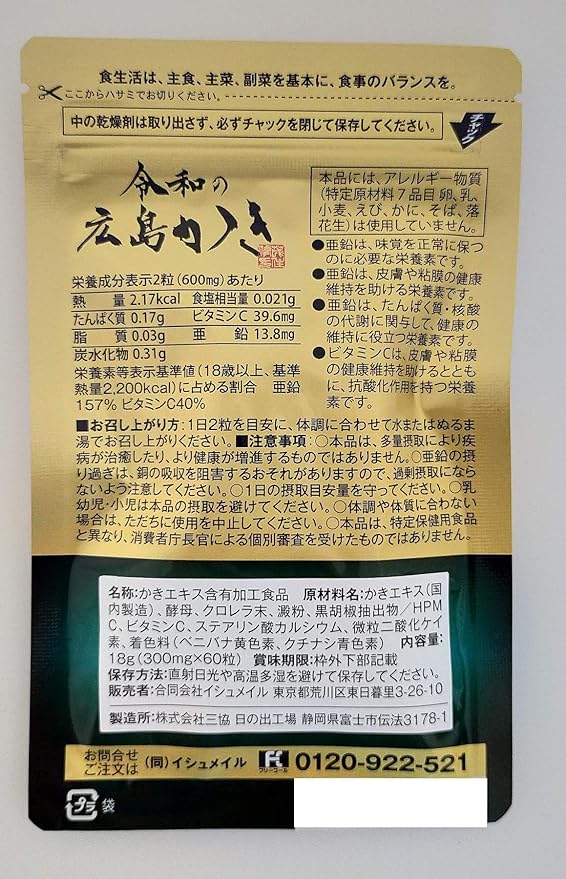 食生活は、主食、主菜、副菜を基本に、食事のバランスを。
ここからハサミでお切りください。
中の乾燥剤は取り出さず、必ずチャックを閉じて保存してください。
チャック
令和の
広島かき
本品には、アレルギー物質
(特定原材料7品目 卵、乳、
小麦、えび、かに、そば、落
花生)は使用していません。
●亜鉛は、味覚を正常に保つ
のに必要な栄養素です。
●亜鉛は、皮膚や粘膜の健康
維持を助ける栄養素です。
●亜鉛は、たんぱく質・核酸
の代謝に関与して、健康の
維持に役立つ栄養素です。
●ビタミンCは、皮膚や粘膜
の健康維持を助けるととも
に、抗酸化作用を持つ栄養
素です。
栄養成分表示2粒(600mg)あたり
熱量 2.17kcal 食塩相当量 0.021g
たんぱく質 0.17g ビタミンC 39.6mg
脂質 0.03g 亜鉛 13.8mg
炭水化物 0.31g
栄養素等表示基準値(18歳以上、基準
熱量2,200kcal)に占める割合 亜鉛
157% ビタミンC40%
■お召し上がり方:1日2粒を目安に、体調に合わせて水またはぬるま
湯でお召し上がりください。■注意事項:○本品は、多量摂取により疾
病が治癒したり、より健康が増進するものではありません。○亜鉛の摂
り過ぎは、銅の吸収を阻害するおそれがありますので、過剰摂取になら
ないよう注意してください。○1日の摂取目安量を守ってください。○乳
幼児・小児は本品の摂取を避けてください。○体調や体質に合わない
場合は、ただちに使用を中止してください。○本品は、特定保健用食品
と異なり、消費者庁長官による個別審査を受けたものではありません。
名称:かきエキス含有加工食品 原材料名:かきエキス(国
内製造)、酵母、クロレラ末、澱粉、黒胡椒抽出物/HPM
C、ビタミンC、ステアリン酸カルシウム、微粒二酸化ケイ
素、着色料(ベニバナ黄色素、クチナシ青色素) 内容量:
18g(300mg×60粒) 賞味期限:枠外下部記載
保存方法:直射日光や高温多湿を避けて保存してください。
販売者:合同会社イシュメイル 東京都荒川区東日暮里3-26-10
製造所:株式会社三協 日の出工場 静岡県富士市伝法3178-1
お問合せ
ご注文は (同)イシュメイル フリーコール 0120-922-521
プラ 袋